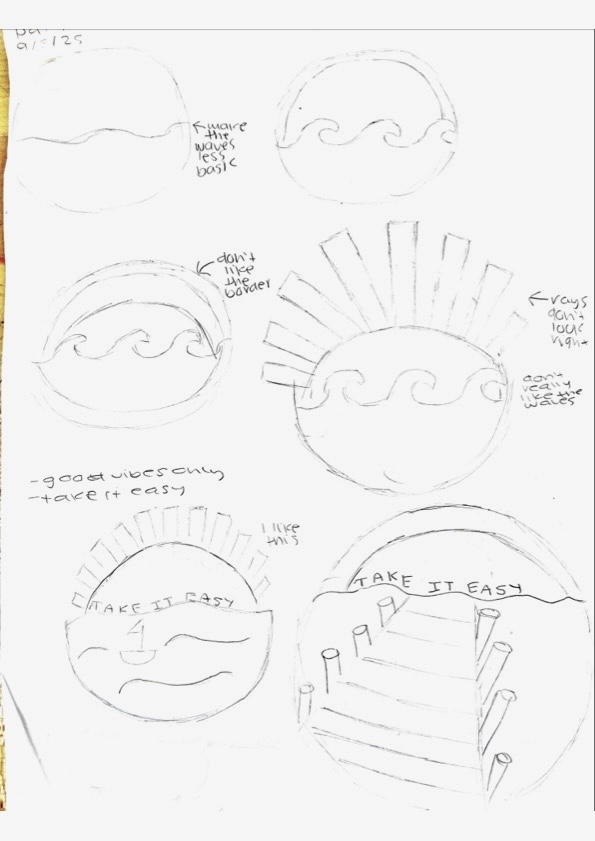 make
the
waves
less
basic
don't
like
the
border
rays
don't
look
right
don't
really
like the
waves
-good vibes only
-take it easy
I like
this
TAKE IT EASY
TAKE IT EASY